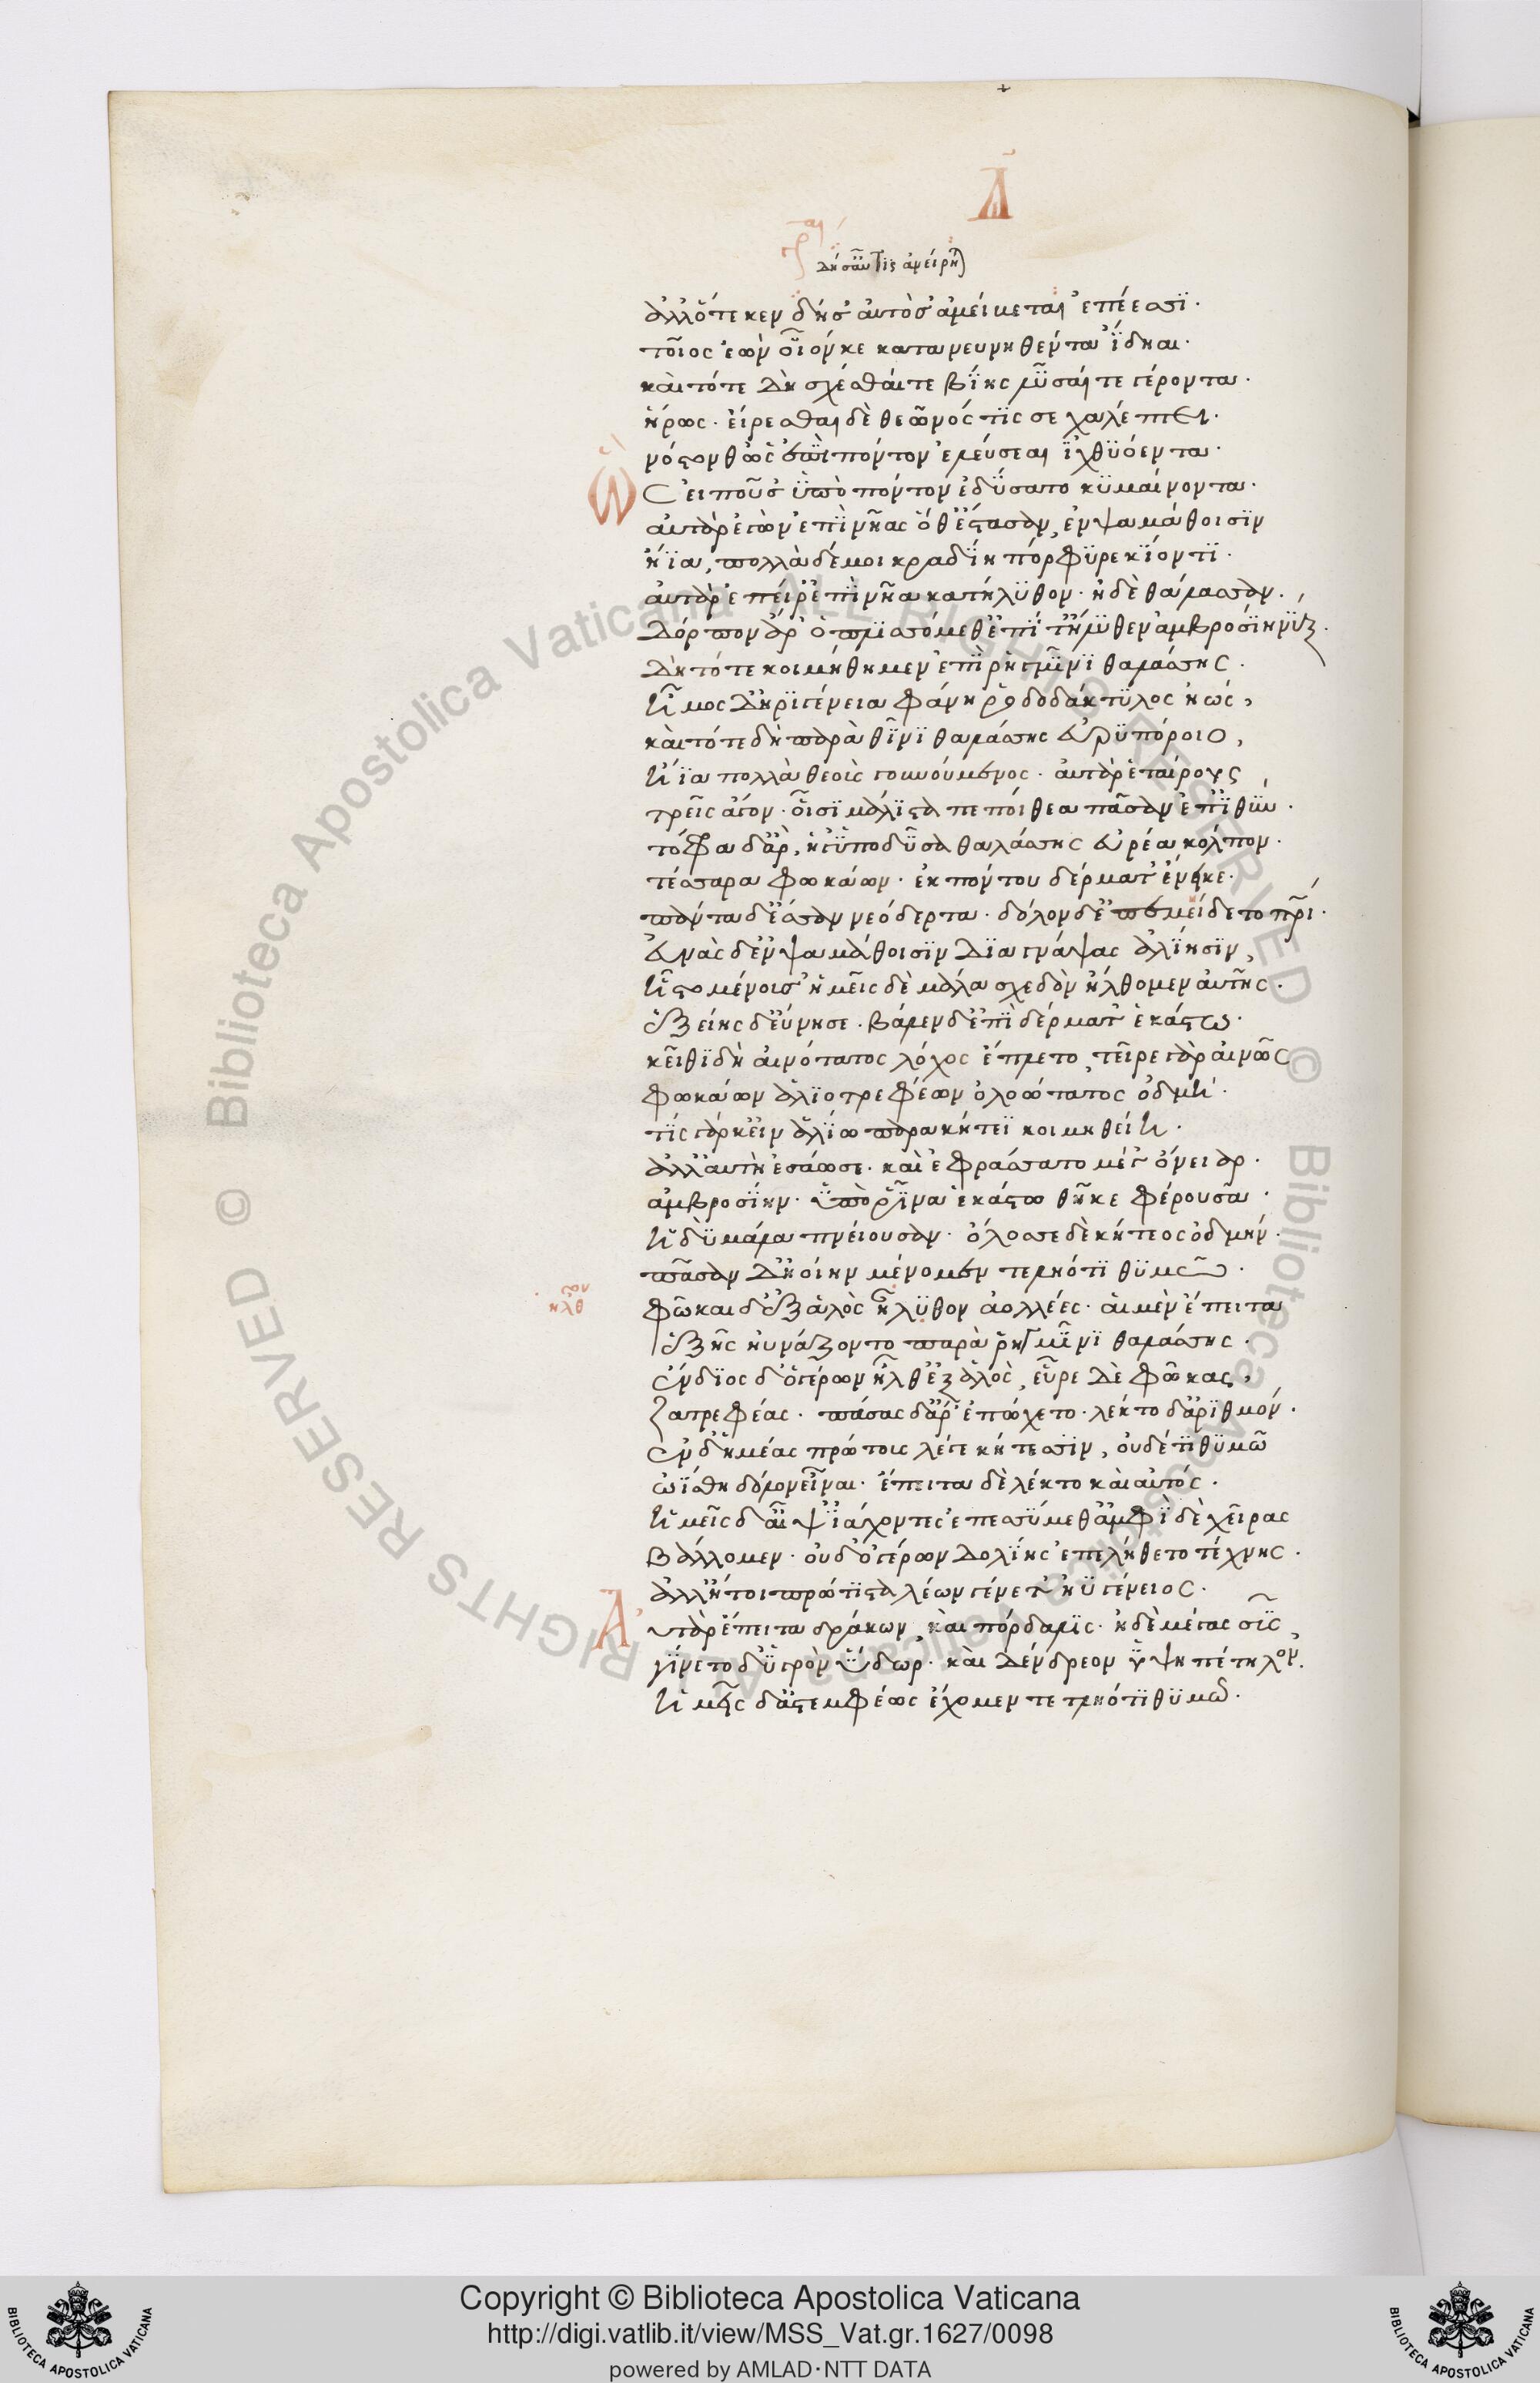 Δ
δή σ᾽ αὖτις ἀνείρηται
ἀλλ᾽ ὅτε κεν δή σ᾽ αὐτὸσ ἀμείψεται ἐπέεσσϊ·
τοῖος ἐὼν οἷόν κε κατευνηθέντα ἴδηαι·
καὶ τότε δὴ σχέσθαι τε βΐης λῦσαί τε γέροντα·
ἥρως· εἴρεσθαι δὲ θεῶν ὅς τίς σε χαλέπτει·
νόστον θ᾽ ὡς ἐπὶ πόντον ἐλεύσεαι ἰχθϋόεντα·
Ὣς εἰποῦσ᾽ ὑπὸ πόντον ἐδύσατο κϋμαίνοντα·
αὐτὰρ ἐγὼν ἐπὶ νῆας ὅθ᾽ ἕστασαν, ἐν ψαμάθοισϊν
ἤϊα, πολλὰ δέ μοι κραδίη πόρφϋρε κϊόντϊ·
αὐτὰρ ἐπεί ῥ᾽ ἐπὶ νῆα κατήλϋθον· ἠδὲ θάλασσαν·
δόρπον ἄρ᾽ ὁπλϊσόμεθ᾽ ἐπί τ᾽ ἤλϋθεν ἀμβροσίη νύξ·
δὴ τότε κοιμήθημεν ἐπὶ ῥηγμῖνϊ θαλάσσης·
Ἦμος δ᾽ ἠρϊγένεια φάνη ῥοδοδάκτϋλος ἠώς,
καὶ τότε δὴ παρὰ θῖνϊ θαλάσσης εὐρϋπόροιο,
ἤϊα πολλὰ θεοὶς γουνούμενος· αὐτὰρ ἑταίρους
τρεῖς ἄγον· οἷσϊ μάλϊστα πεποίθεα πᾶσαν ἐπ᾽ ἰθύν·
τόφρα δ᾽ ἄρ, ἥγ᾽ ὑποδῦσα θαλάσσης εὐρέα κόλπον·
τέσσαρα φωκάων· ἐκ πόντου δέρματ᾽ ἔνεικε·
πάντα δ᾽ ἔσαν νεόδερτα· δόλον δ᾽ ἐπεμείδετο πατρί·
εὐνὰς δ᾽ ἐν ψαμάθοισϊν δϊαγνάψας ἁλίησϊν,
ἧστο μένουσ᾽ ἡμεῖς δὲ μάλα σχεδὸν ἤλθομεν αὐτῆς·
ἑξείης δ᾽ εὔνησε· βάλεν δ᾽ ἐπὶ δέρματ᾽ ἑκάστω·
κεῖθϊ δὴ αἰνότατος λόχος ἔπλετο, τεῖρε γὰρ αἰνῶς
φωκάων ἁλϊοτρεφέων ὀλοώτατος ὀδμή·
τίς γάρ κ᾽ εἰν ἁλίω παρὰ κήτεϊ κοιμηθείη·
ἀλλ᾽ αὐτὴ ἐσάωσε· καὶ ἐφράσσατο μέγ᾽ ὄνειαρ·
ἀμβροσίην· ὑπὸ ῥῖνα ἑκάστω θῆκε φέρουσα·
ἡδὺ μάλα πνείουσαν· ὄλοσσε δὲ κήτεος ὀδμήν·
πᾶσαν δ᾽ ἠοίην μένομεν τετληότϊ θϋμῶ·
ηλθον
φῶκαι δ᾽ ἐξ ἁλὸς ἤλϋθον ἀολλέες· αἱ μὲν ἔπειτα
ἑξῆς ηὐνάζοντο παρὰ ῥηγμῖνϊ θαλάσσης·
ἔνδϊος δ᾽ ὁ γέρων ἦλθ᾽ ἐξ ἁλός, εὗρε δὲ φώκας,
ζατρεφέας· πάσας δ᾽ ἄρ᾽ ἐπώχετο· λέκτο δ᾽ ἀρϊθμόν·
ἐν δ᾽ ἡμέας πρώτους λέγε κήτεσϊν, οὐδέ τι θϋμῶ
ὠΐσθη δόλον εἶναι· ἔπειτα δὲ λέκτο καὶ αὐτός·
ἡμεῖς δ᾽ αἶψ᾽ ἰάχοντες ἐπεσσύμεθ᾽ ἀμφὶ δὲ χεῖρας
βάλλομεν· οὐδ᾽ ὁ γέρων δολίης ἐπελήθετο τέχνης·
ἀλλ᾽ ἤτοι πρώτϊστα λέων γένετ᾽ ἠϋγένειος·
Αὐτὰρ ἔπειτα δράκων, καὶ πόρδαλϊς· ἠδὲ μέγας σῦς,
γίνετο δ᾽ ὑγρὸν ὕδωρ· καὶ δένδρεον ὑψηπέτηλον·
ἡμεῖς δ᾽ ἀστεμφέως ἔχομεν τετληότϊ θϋμῶ·
Copyright © Biblioteca Apostolica Vaticana
http://digi.vatlib.it/view/MSS_Vat.gr.1627/0098
powered by AMLAD·NTT DATA